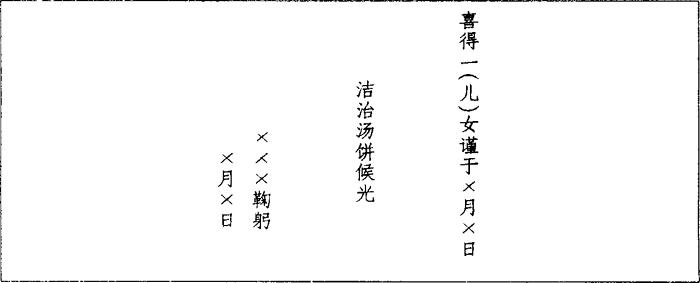 喜得一(儿)女谨于×月×日
洁治汤饼候光
×××鞠躬
×月×日